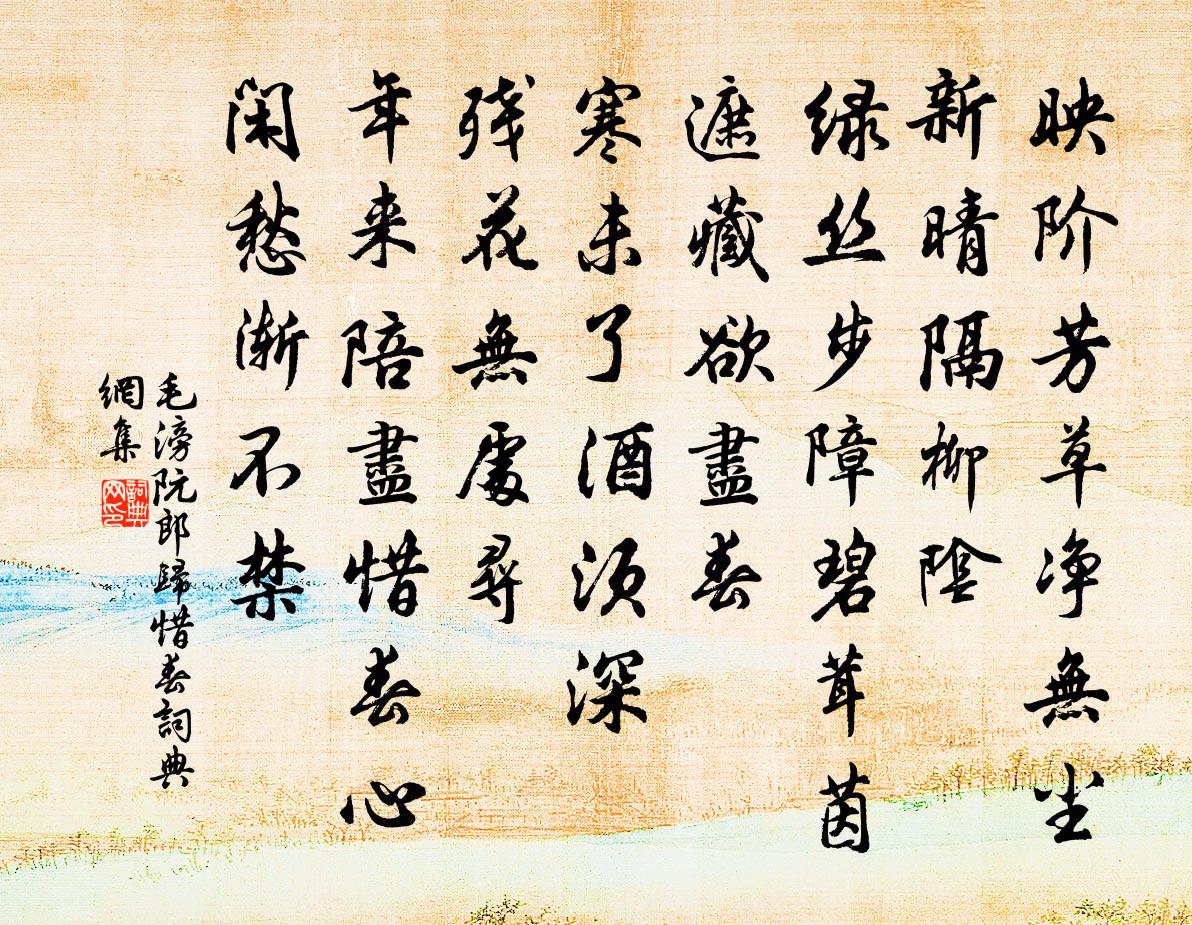 映阶芳草净無尘
新晴隔柳陰
绿丝步障碧茸茵
遮藏欲盡春
寒未了酒须深
残花無處尋
年来陪盡惜春心
闲愁渐不禁
毛滂阮郎歸惜春詞典
網集
詞典
网印